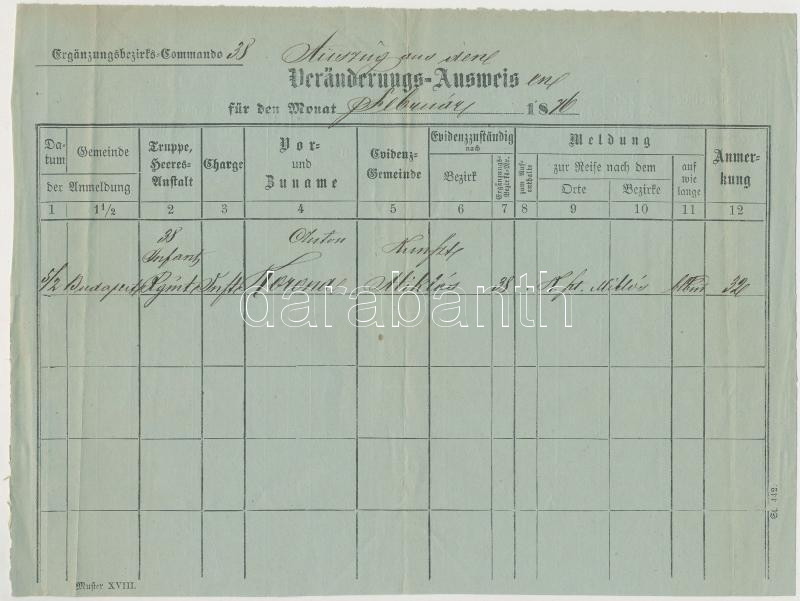 Ergänzungsbezirks-Commando 38 Auszug aus dem
Veränderungs-Ausweis
für den Monat Februar 1876
Da-
tum
Gemeinde
der Anmeldung
Truppe,
Heeres-
Anstalt
Charge
Vor-
und
Zuname
Evidenz-
Gemeinde
Evidenzzuständig
nach
Bezirk
Ergänzungs-
Bezirks-Nr.
Meldung
zum Auf-
enthalte
zur Reise nach dem
Orte, Bezirke
auf
wie
lange
Anmer-
kung
1 1 1/2 2 3 4 5 6 7 8 9 10 11 12
38 Anton Kunszt
Infant
5/2 Budapest Rgmt Inft Miklós 38 Miklós 32
darabanth
St. 442.
Muster XVIII.